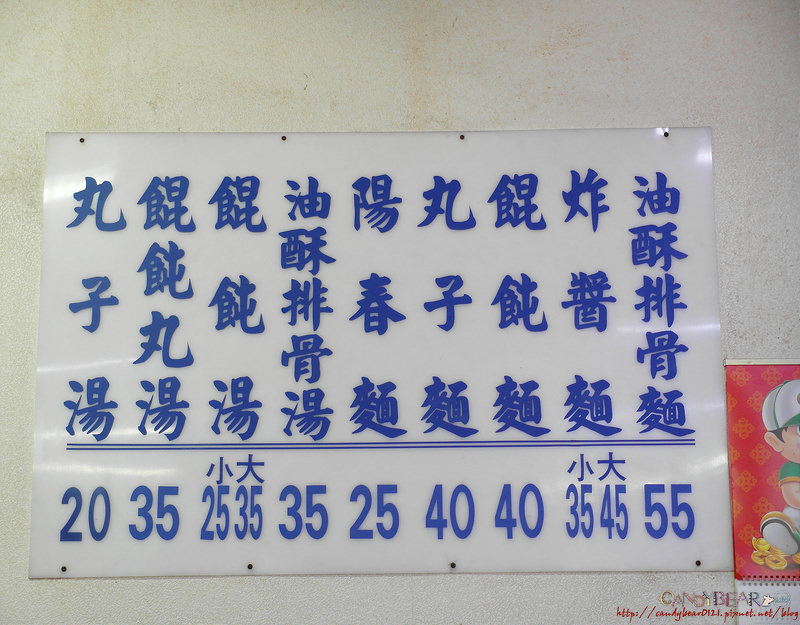 油酥排骨麵
55
炸醬麵
小 大
35 45
餛飩麵
40
丸子麵
40
陽春麵
25
油酥排骨湯
35
餛飩湯
小 大
25 35
餛飩丸湯
35
丸子湯
20
CANDYBEAR
http://candybear0121.pixnet.net/blog